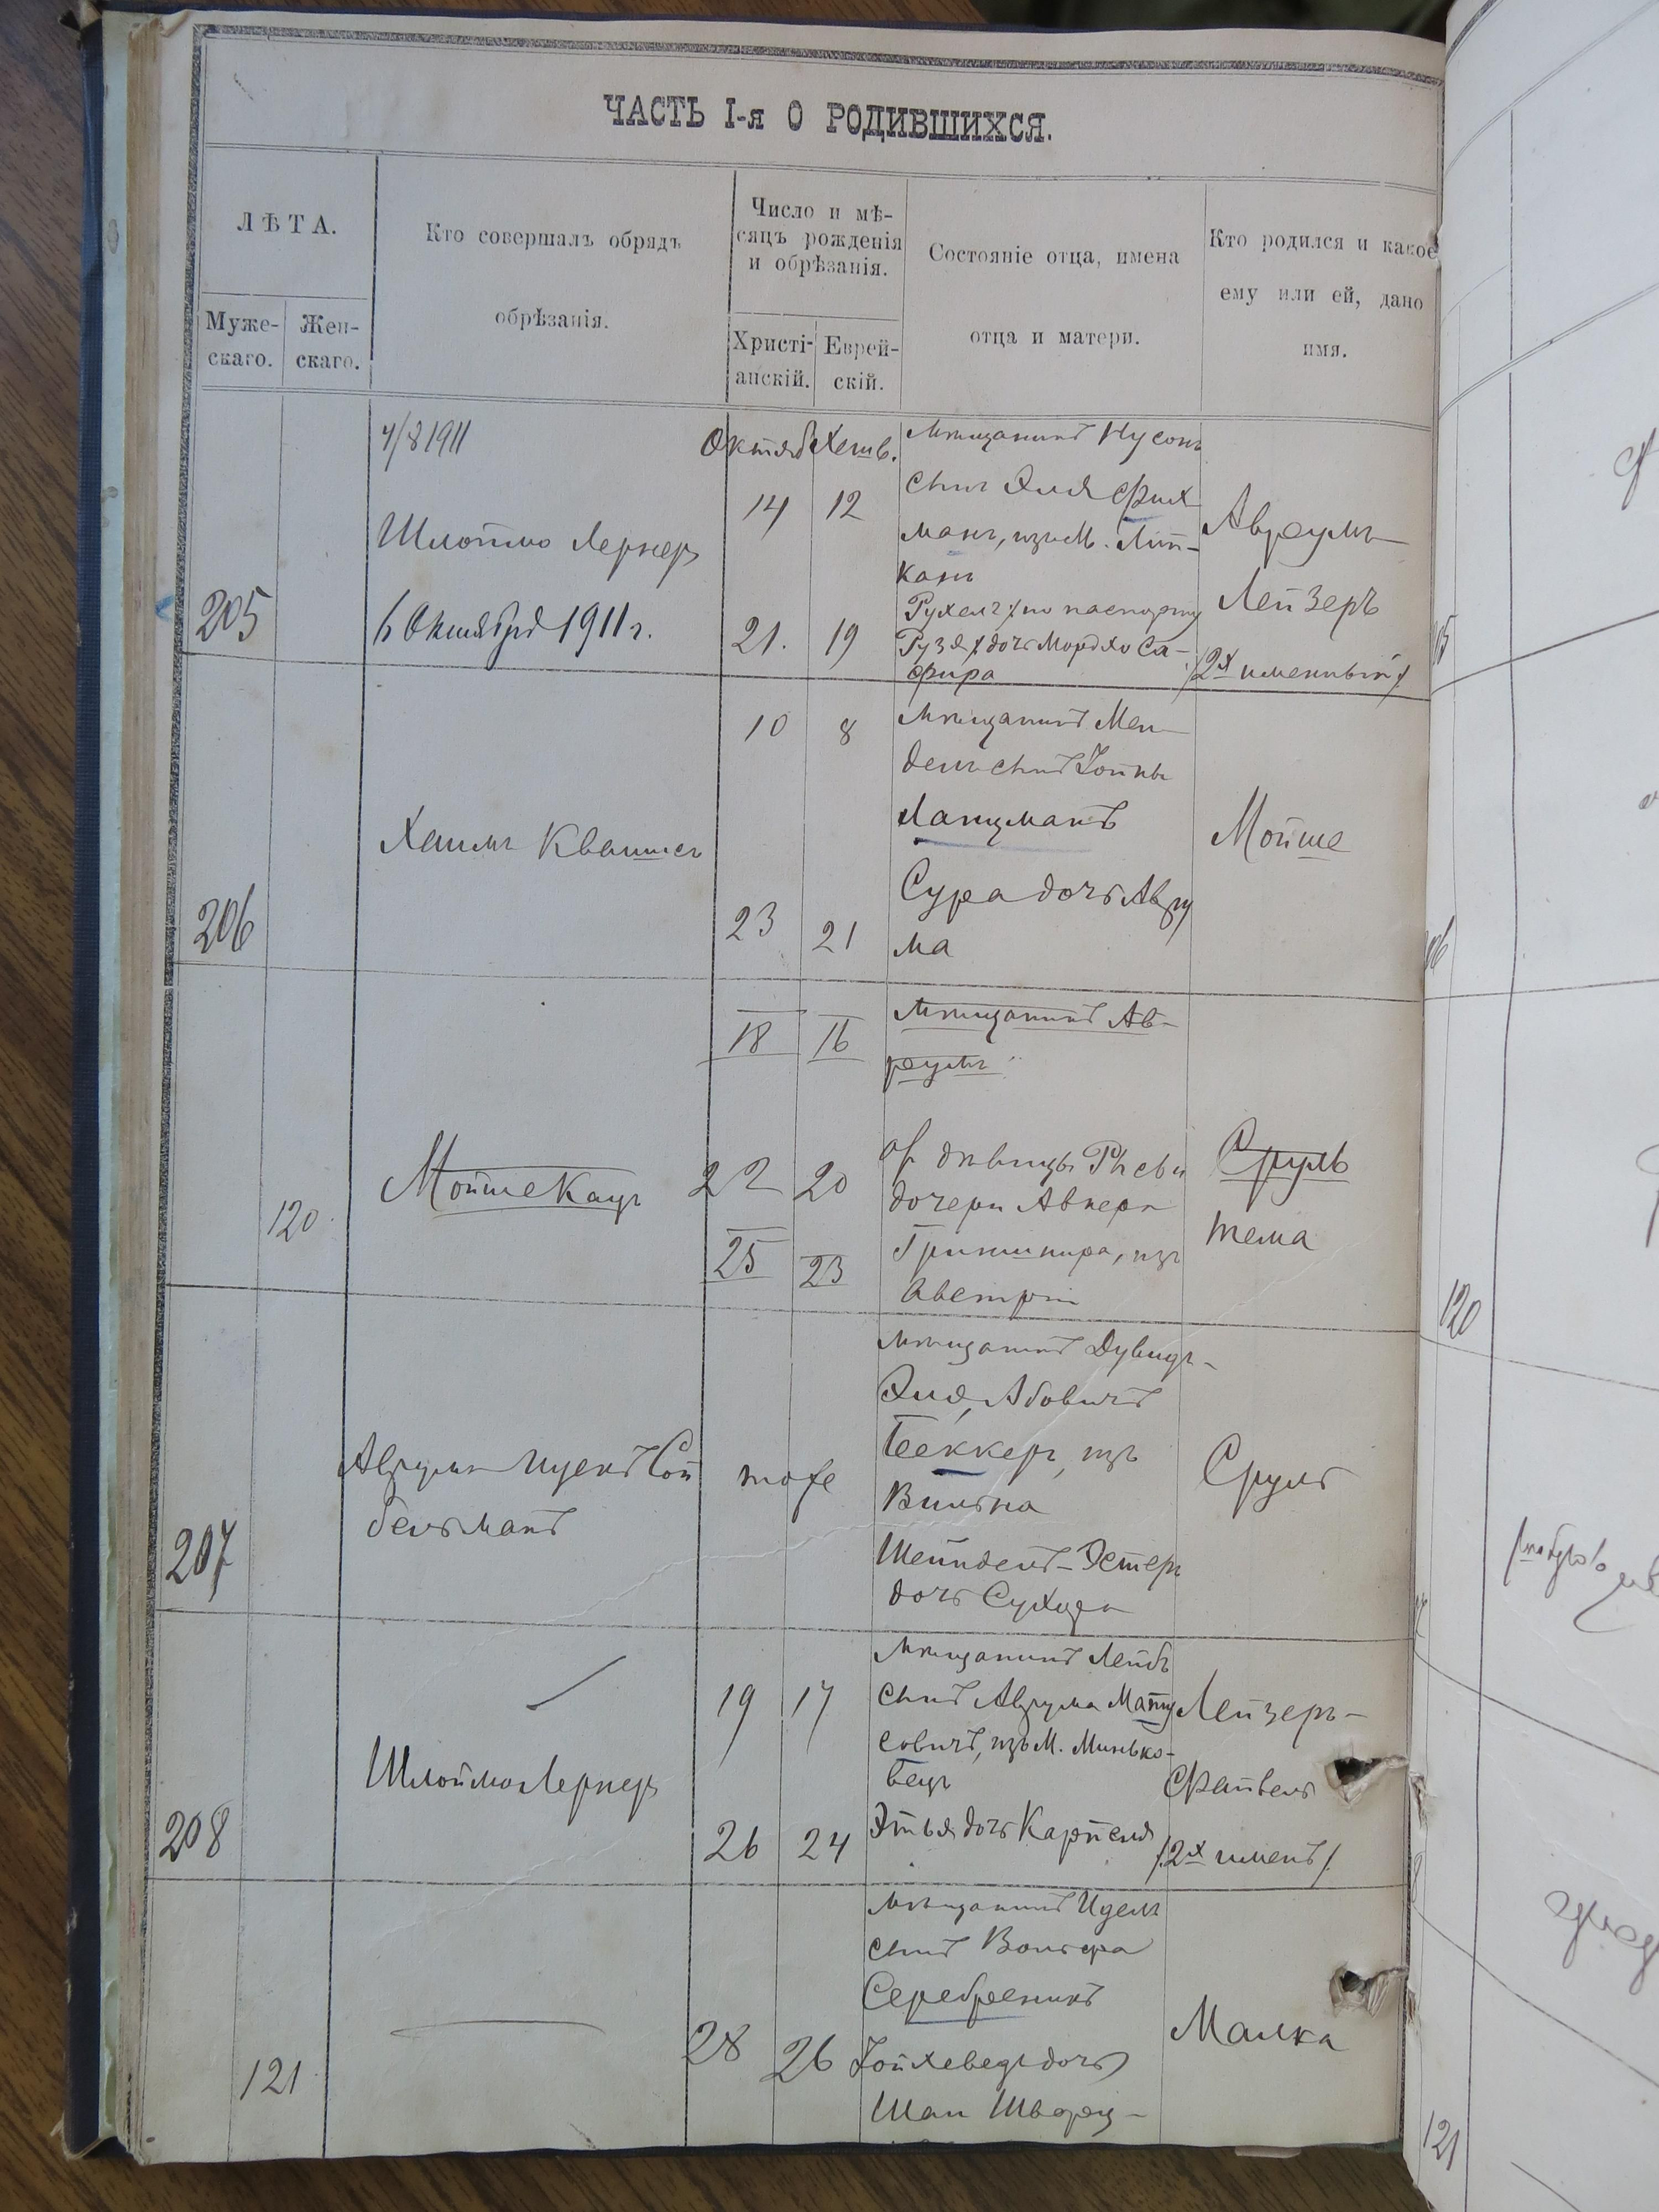 ЧАСТЬ I-я О РОДИВШИХСЯ.
ЛѢТА.
Муже-
скаго.
Жен-
скаго.
Кто совершалъ обрядъ
обрѣзанія.
Число и мѣ-
сяцъ рожденія
и обрѣзанія.
Христі-
анскій.
Еврей-
скій.
Состояніе отца, имена
отца и матери.
Кто родился и какое
ему или ей, дано
имя.
205
4/8 1911
Шлоймо Лернеръ
6 Октября 1911 г.
Октяб
Хешв.
14 12
21. 19
Мѣщанинъ Нусонъ
сынъ Эля Фих
манъ, изъ М. Лип-
канъ
Рухель /по паспорту
Рузя/ дочь Мордхо Са-
фира
Авреумъ
Лейзеръ
/2х именный/
206
Хаимъ
10 8
23 21
Мѣщанинъ Мен
дель сынъ Іойны
Лануманъ
Сура дочь Авру
ма
Мойше
120
Мойше Кацъ
18 16
22 20
25 23
Мѣщанинъ Ав-
реумъ
от дѣвицы
дочери
изъ
Австріи
Сруль
тема
207
Аврумъ Ицекъ Сой
бельманъ
тоже
мѣщанинъ Дувидъ-
Эля Абовичъ
Беккеръ, изъ
Вильна
Шейндель-Эстеръ
дочь Сухера
Сруль
208
Шлоймо Лернеръ
19 17
26 24
Мѣщанинъ Лейбъ
сынъ Аврума Мату
совичъ, изъ М. Минько-
вецъ
Этья дочь Карпеля
Лейзеръ-
Файвель
/2х именъ/
121
28 26
Мѣщанинъ Идель
сынъ Вольфа
Серебреникъ
Іойхеведъ дочь
Шаи Шварц-
Малка
120
121